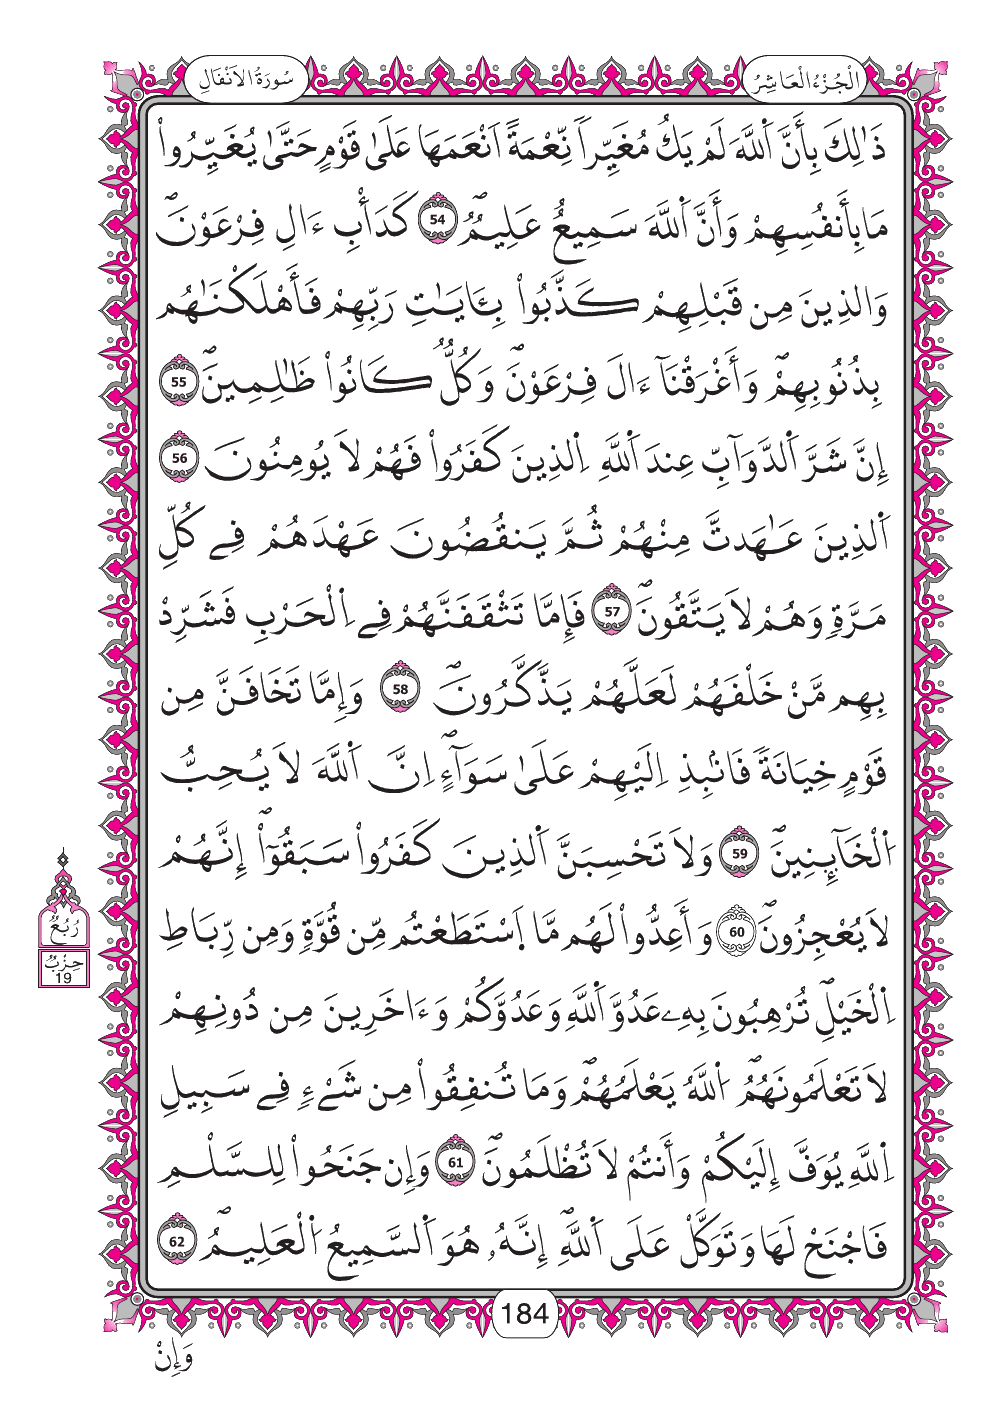 الْجُزْءُ الْعَاشِرُ
سُورَةُ الاَنْفَالِ
ذَٰلِكَ بِأَنَّ اَ۬للَّهَ لَمْ يَكُ مُغَيِّراٗ نِّعْمَةً اَنْعَمَهَا عَلَىٰ قَوْمٍ حَتَّىٰ يُغَيِّرُواْ
مَا بِأَنفُسِهِمْ وَأَنَّ اَ۬للَّهَ سَمِيعٌ عَلِيمٞۖ 54 كَدَأْبِ ءَالِ فِرْعَوْنَۖ
وَالذِينَ مِن قَبْلِهِمْ كَذَّبُواْ بِـَٔايَٰتِ رَبِّهِمْ فَأَهْلَكْنَٰهُم
بِذُنُوبِهِمْۖ وَأَغْرَقْنَآ ءَالَ فِرْعَوْنَۖ وَكُلّٞ كَانُواْ ظَٰلِمِينَۖ 55
إِنَّ شَرَّ اَ۬لدَّوَآبِّ عِندَ اَ۬للَّهِ اِ۬لذِينَ كَفَرُواْ فَهُمْ لَا يُومِنُونَ 56
اَ۬لذِينَ عَٰهَدتَّ مِنْهُمْ ثُمَّ يَنقُضُونَ عَهْدَهُمْ فِے كُلِّ
مَرَّةٖ وَهُمْ لَا يَتَّقُونَۖ 57 فَإِمَّا تَثْقَفَنَّهُمْ فِے اِ۬لْحَرْبِ فَشَرِّدْ
بِهِم مَّنْ خَلْفَهُمْ لَعَلَّهُمْ يَذَّكَّرُونَۖ 58 وَإِمَّا تَخَافَنَّ مِن
قَوْمٍ خِيَانَةٗ فَانۢبِذِ اِلَيْهِمْ عَلَىٰ سَوَآءٍۖ اِنَّ اَ۬للَّهَ لَا يُحِبُّ
اُ۬لْخَآئِنِينَۖ 59 وَلَا تَحْسِبَنَّ اَ۬لذِينَ كَفَرُواْ سَبَقُوٓاْۖ إِنَّهُمْ
لَا يُعْجِزُونَۖ 60 وَأَعِدُّواْ لَهُم مَّا اَ۪سْتَطَعْتُم مِّن قُوَّةٖ وَمِن رِّبَاطِ
اِ۬لْخَيْلِۖ تُرْهِبُونَ بِهِۦ عَدُوَّ اَ۬للَّهِ وَعَدُوَّكُمْ وَءَاخَرِينَ مِن دُونِهِمْ
لَا تَعْلَمُونَهُمُۖ اُ۬للَّهُ يَعْلَمُهُمْۖ وَمَا تُنفِقُواْ مِن شَےْءٖ فِے سَبِيلِ
اِ۬للَّهِ يُوَفَّ إِلَيْكُمْ وَأَنتُمْ لَا تُظْلَمُونَۖ 61 وَإِن جَنَحُواْ لِلسَّلْمِ
فَاجْنَحْ لَهَا وَتَوَكَّلْ عَلَى اَ۬للَّهِۖ إِنَّهُۥ هُوَ اَ۬لسَّمِيعُ اُ۬لْعَلِيمُۖ 62
رُبُعُ
حِزْبٌ
19
184
وَإِنْ